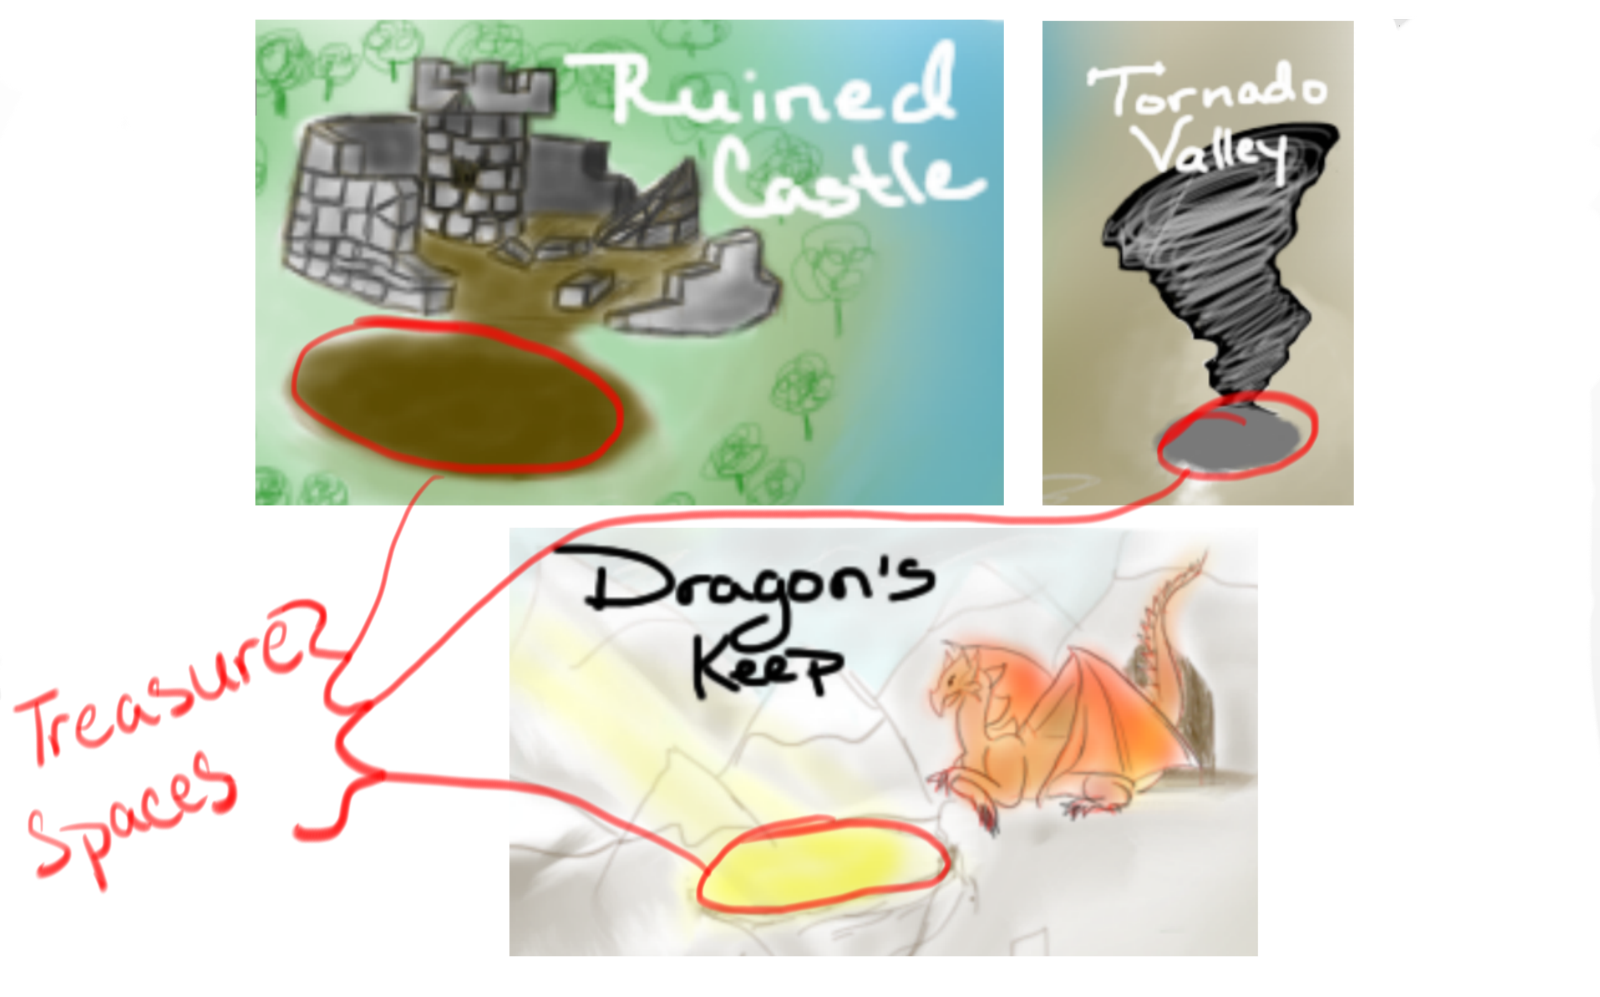 Ruined
Castle
Tornado
Valley
Dragon's
Keep
Treasure
Spaces